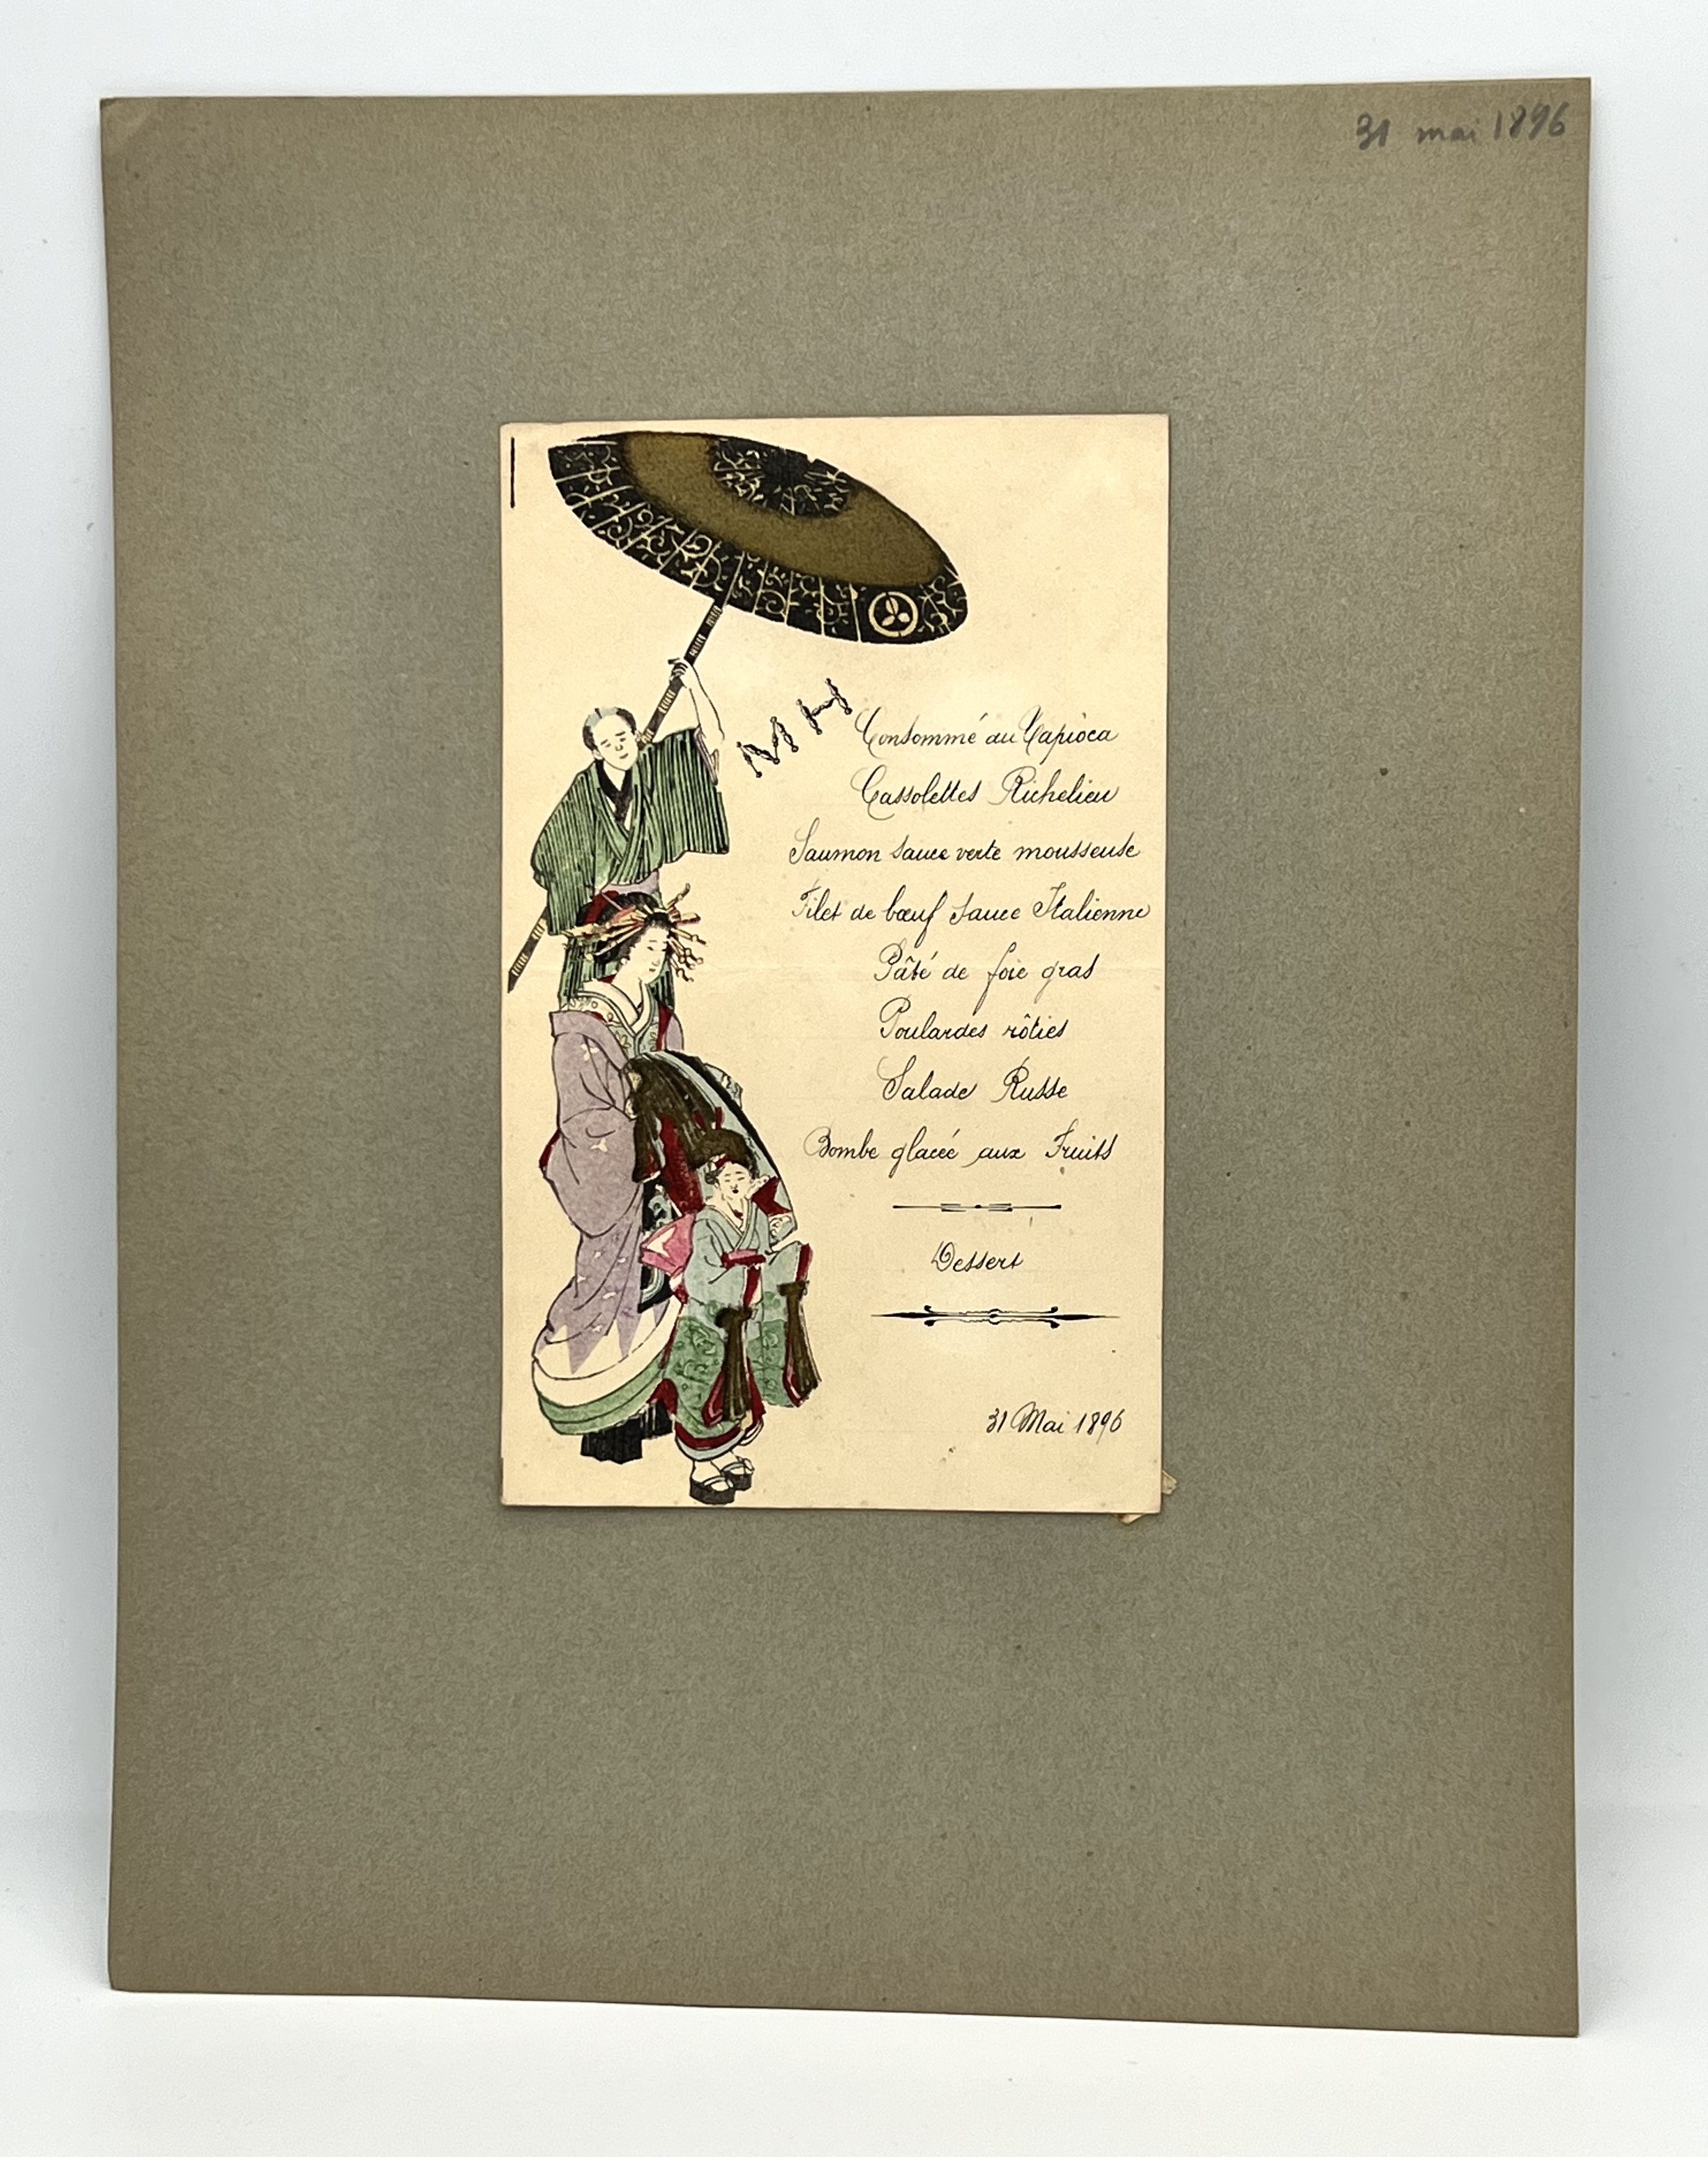 31 mai 1896
M H
Consommé au Tapioca
Cassolettes Richelieu
Saumon sauce verte mousseuse
Filet de bœuf sauce Italienne
Pâté de foie gras
Poulardes rôties
Salade Russe
Bombe glacée aux Fruits
Dessert
31 Mai 1896